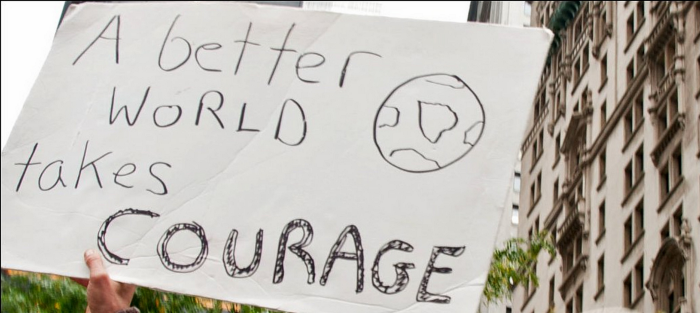 A better
WORLD
takes
COURAGE